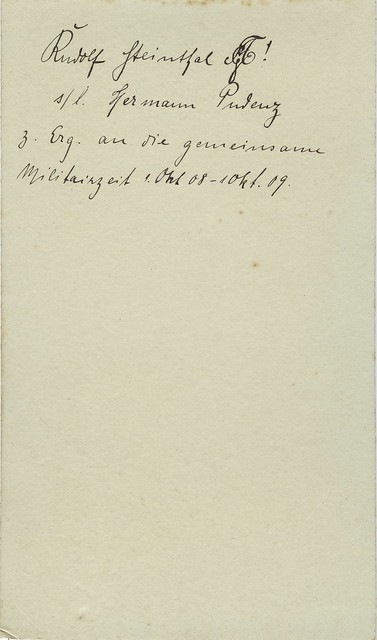 Rudolf Steinthal !
s/l. Hermann Pudenz
z. Erg. an die gemeinsame
Militairzeit 1. Okt 08 - 1 Okt. 09.